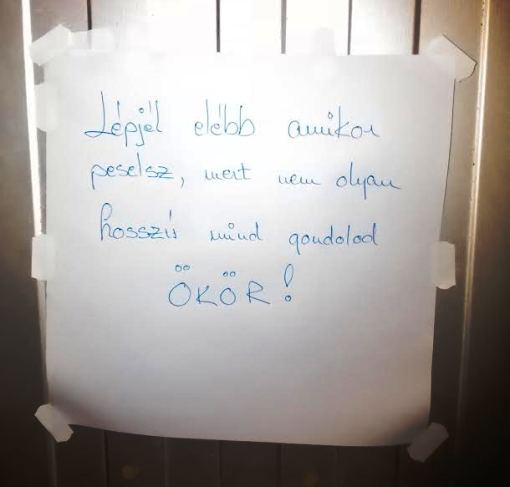 Lépjél elébb amikor
peselsz, mert nem olyan
hosszú mind gondolod
ÖKÖR!